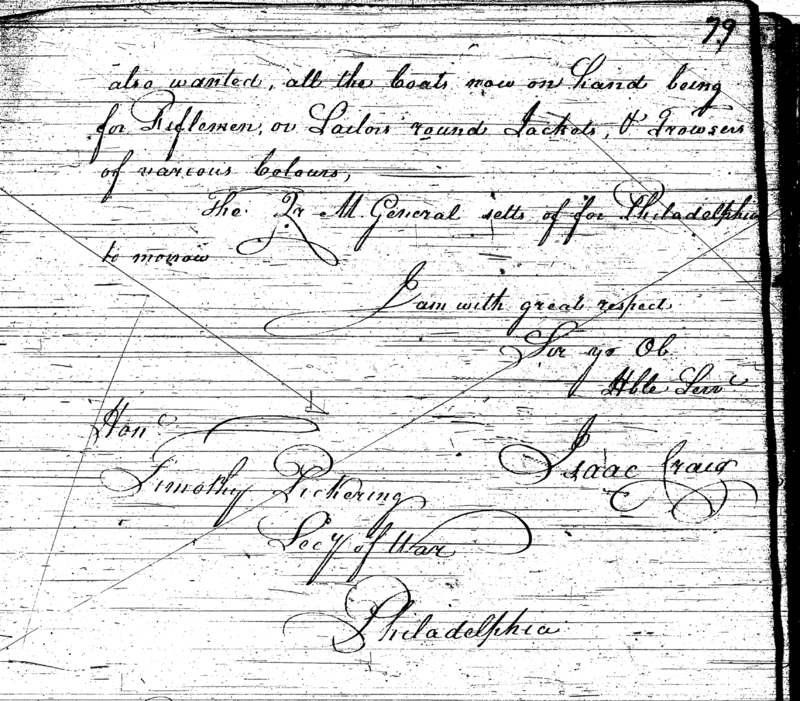 79
also wanted, all the Coats now on hand being
for Riflemen, or Sailors round Jackets, & Trowsers
of various Colours,
The Qr M. General setts of for Philadelphia
to morrow
I am with great respect
Sir yr Ob
Hble Servt
Honl
Timothy Pickering
Isaac Craig
Secy of War
Philadelphia